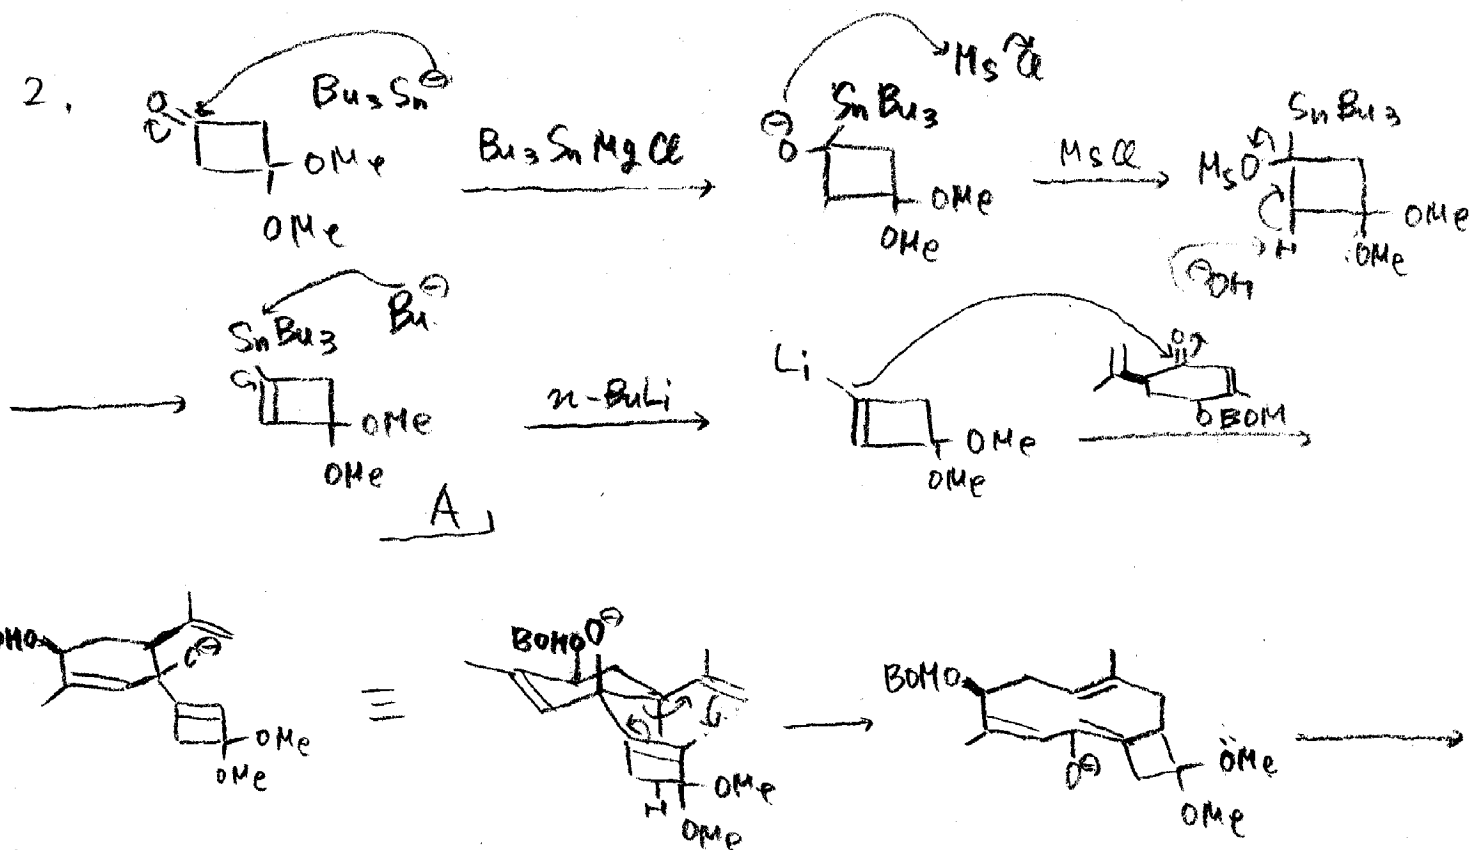 2.
O
Bu₃Sn⊖
OMe
OMe
Bu₃SnMgCl
⊖
O
SnBu₃
OMe
OMe
MsCl
MsCl
SnBu₃
MsO
H
⊖OH
OMe
OMe
SnBu₃
Bu⊖
OMe
OMe
A
n-BuLi
Li
OMe
OMe
O
OBOM
OMe
OMe
O⊖
≡
BOMO
O⊖
H
OMe
OMe
BOMO
O⊖
OMe
OMe